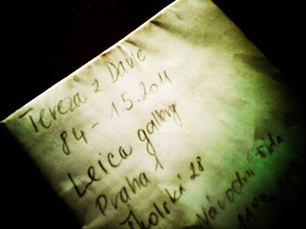 Tereza z Davle
84-15.2011
Leica gallery
Praha 1
Školská 28
Národní třída